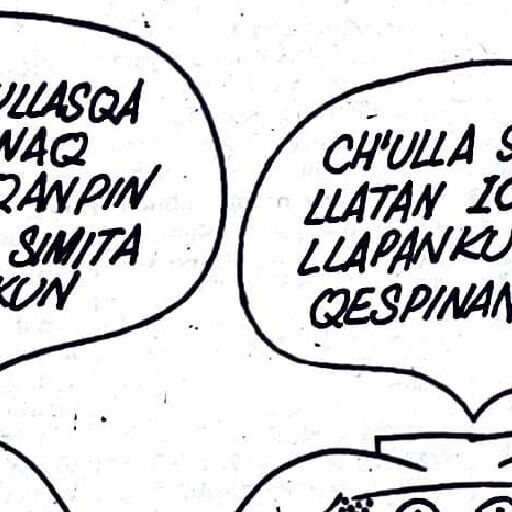 ULLASQA
NAQ
QANPIN
SIMITA
KUN
CH'ULLA S
LLATAN IC
LLAPANKU
QESPINAN